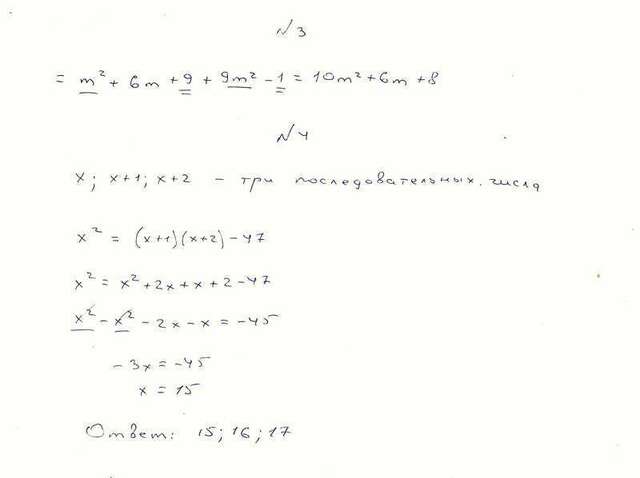 №3
= m² + 6m + 9 + 9m² - 1 = 10m² + 6m + 8
№4
x; x+1; x+2 - три последовательных числа
x² = (x+1)(x+2) - 47
x² = x² + 2x + x + 2 - 47
x² - x² - 2x - x = -45
-3x = -45
x = 15
Ответ: 15; 16; 17